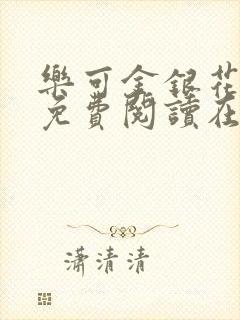 樂可金銀花
免費閱讀在
瀟清清